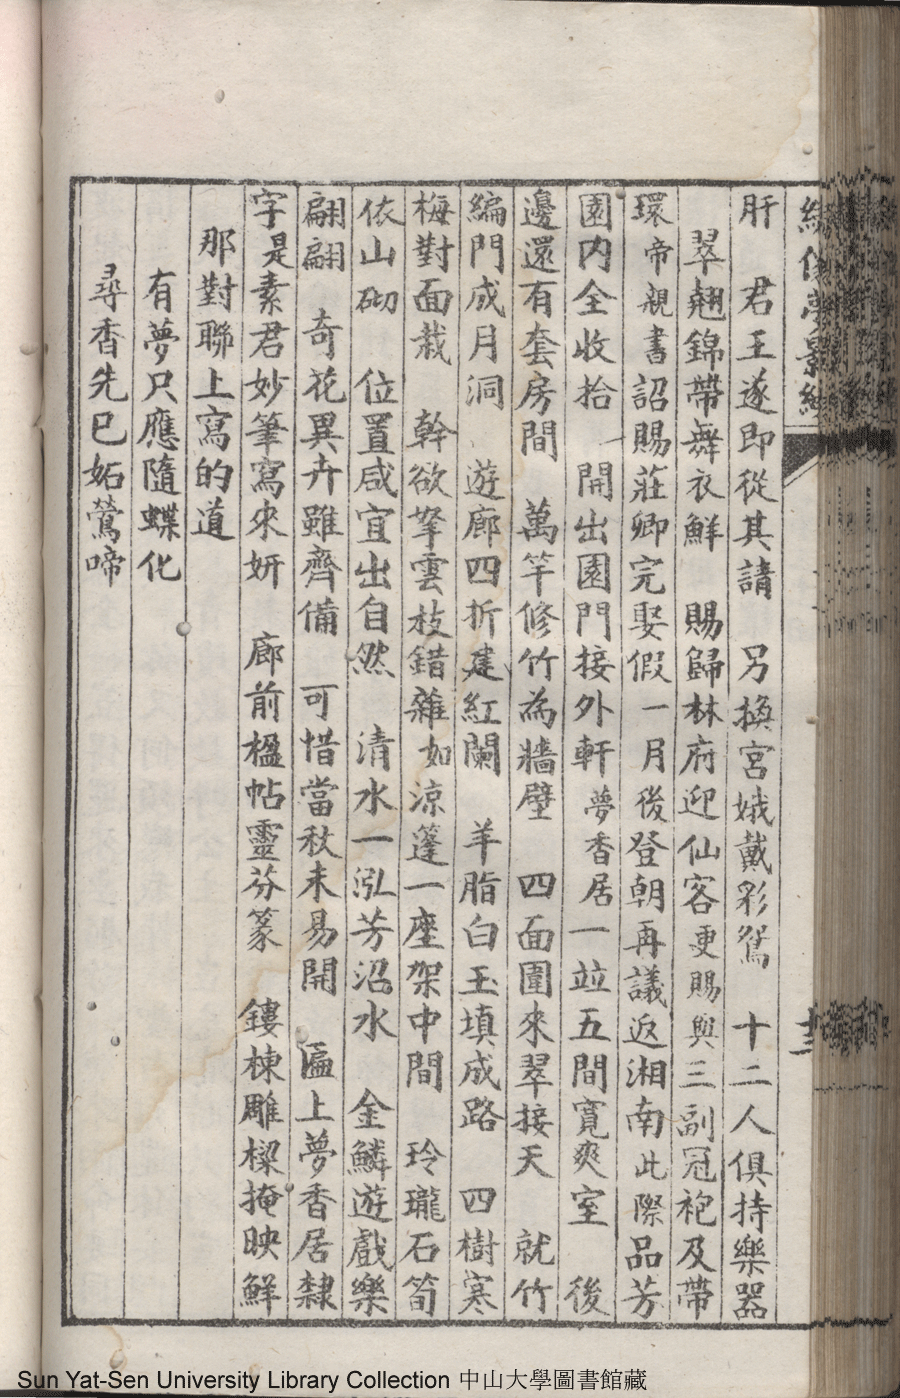 肝　君王遂即從其請　另換宮娥戴彩鴛　十二人俱持樂器
翠翹錦帶舞衣鮮　賜歸林府迎仙客更賜與三副冠袍及帶
環帝親書詔賜莊卿完娶假一月後登朝再議返湘南此際品芳
園內全收拾　開出園門接外軒夢香居一竝五間寬爽室　後
邊還有套房間　萬竿修竹為牆壁　四面圍來翠接天　就竹
編門成月洞　遊廊四折建紅闌　羊脂白玉填成路　四樹寒
梅對面栽　幹欲拏雲枝錯雜如涼篷一座架中間　玲瓏石筍
依山砌　位置咸宜出自然　清水一泓芳沼水　金鱗遊戲樂
翩翩　奇花異卉雖齊備　可惜當秋未易開　匾上夢香居隸
字是素君妙筆寫來妍　廊前楹帖靈芬篆　鏤棟雕樑掩映鮮
那對聯上寫的道
有夢只應隨蝶化
尋香先已妬鶯啼
Sun Yat-Sen University Library Collection 中山大學圖書館藏